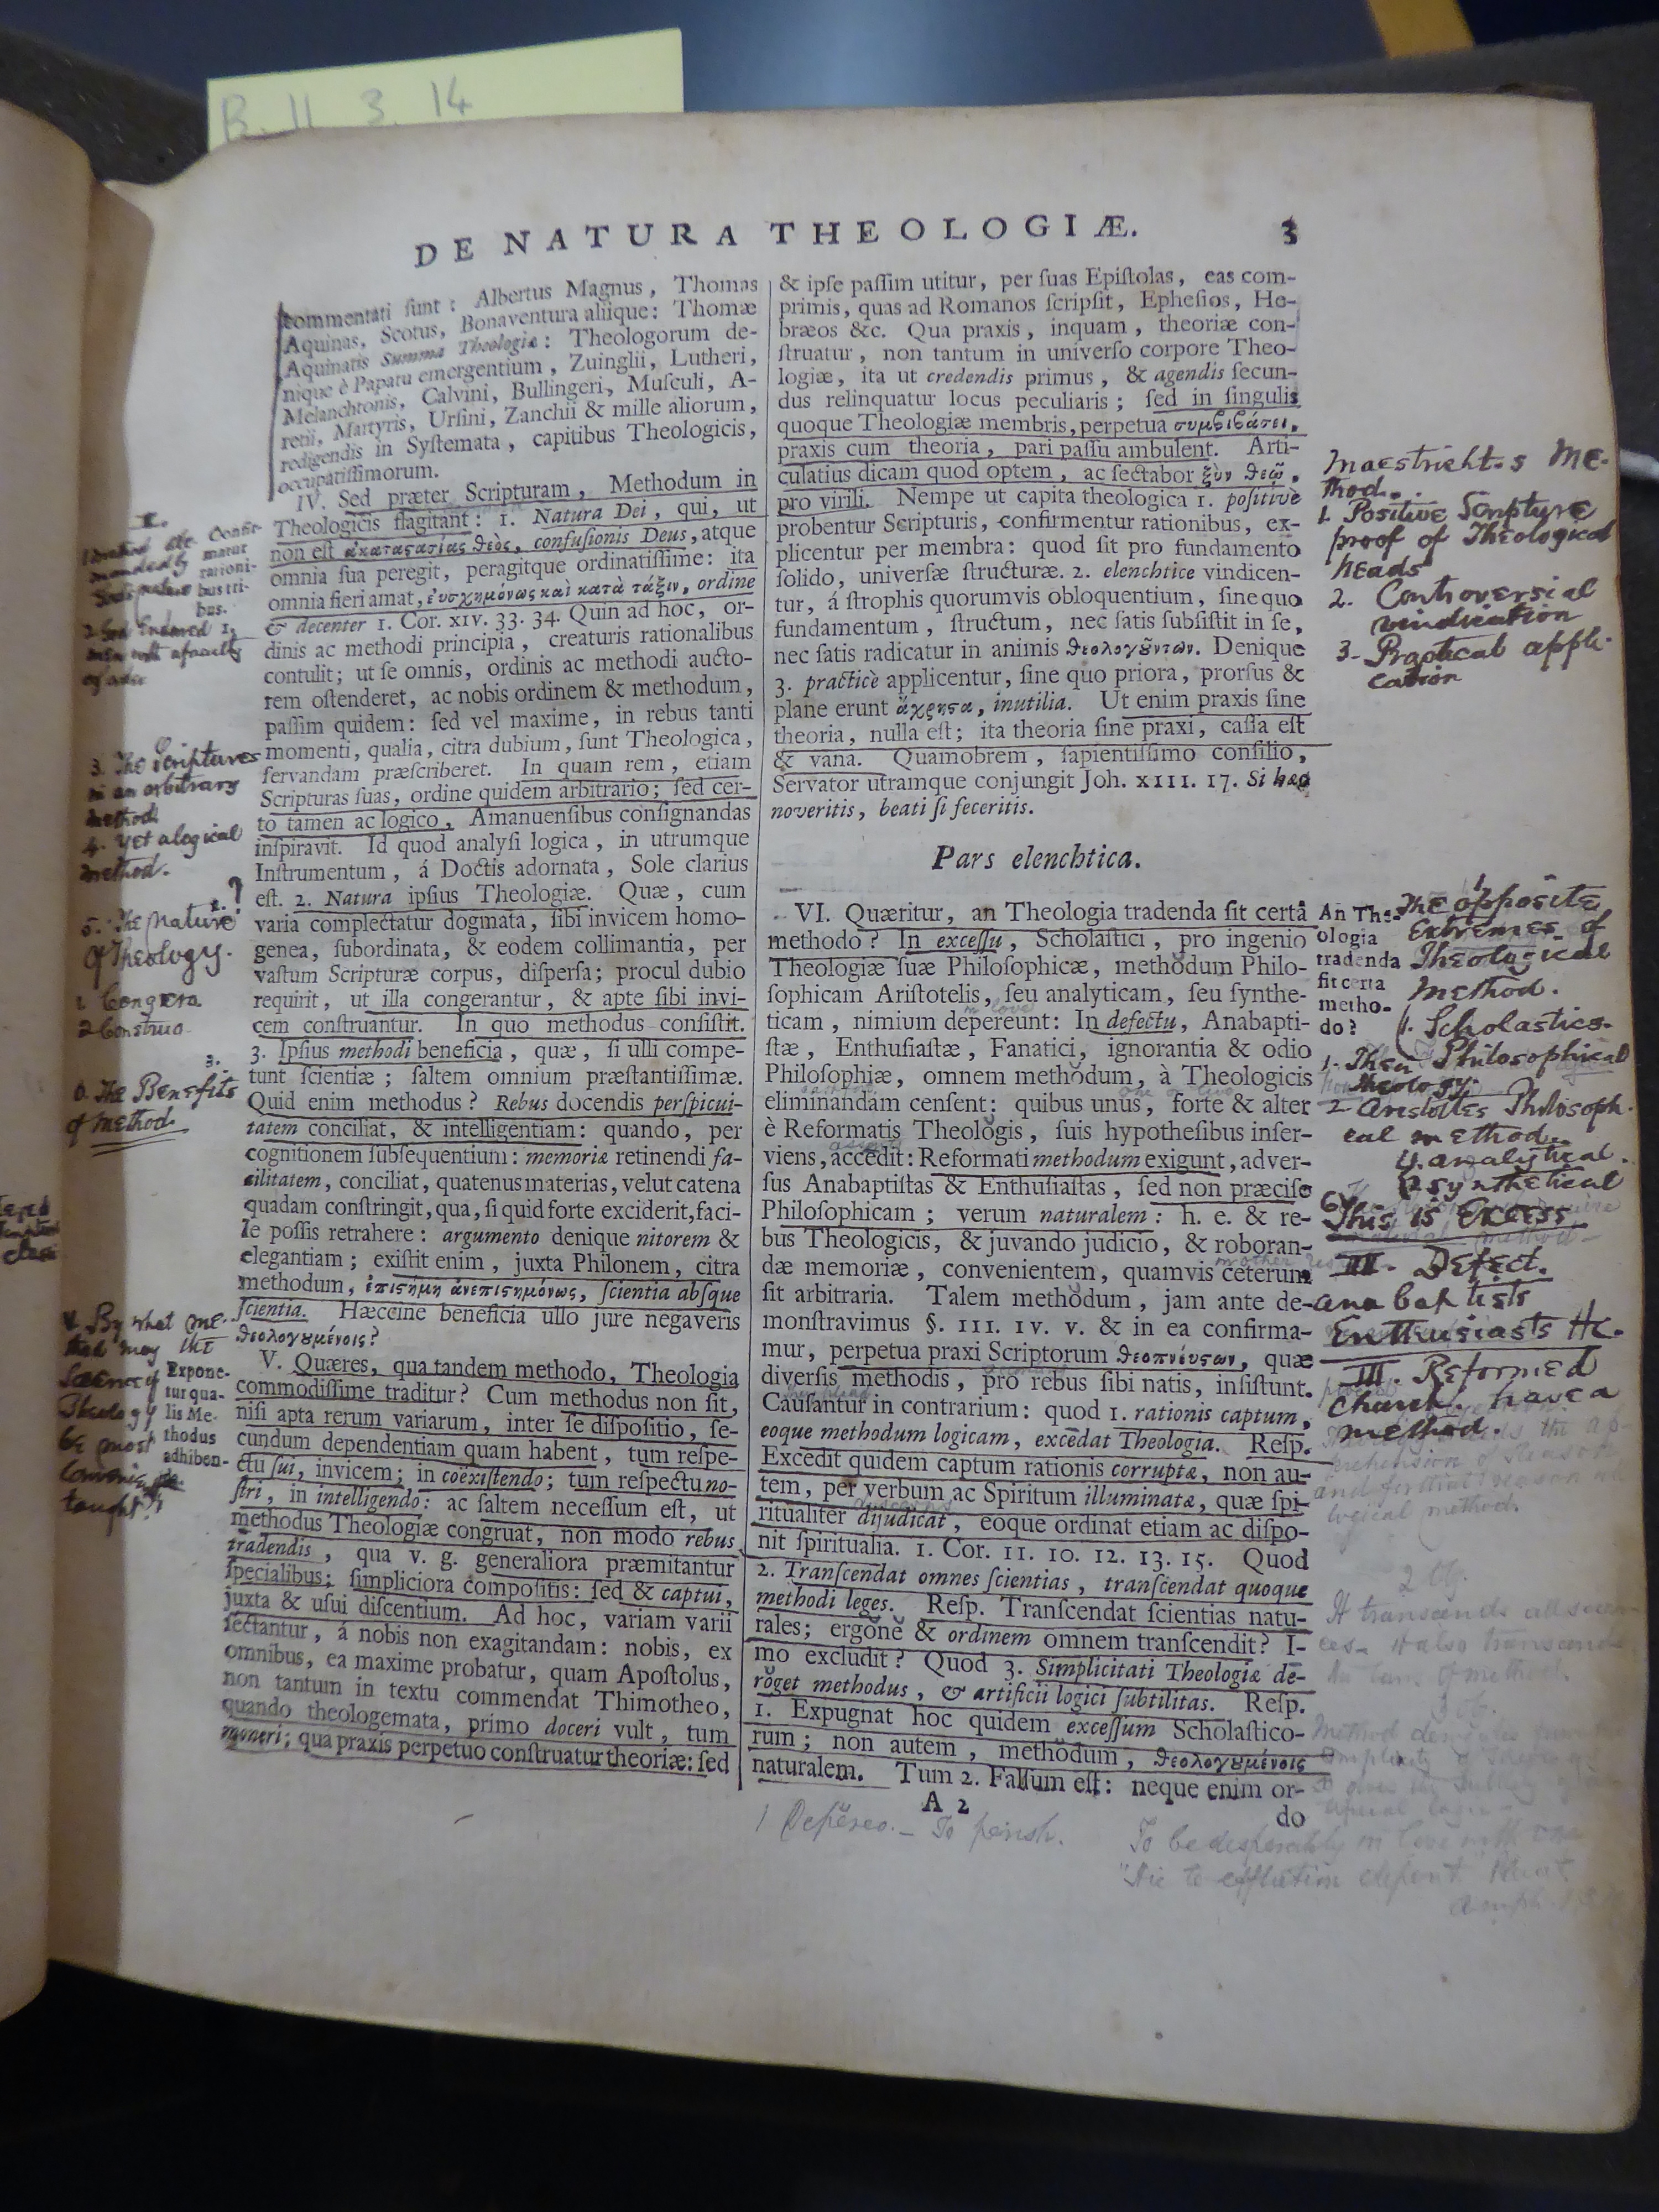 B. 11. 3. 14
DE NATURA THEOLOGIÆ.
3
commentati ſunt: Albertus Magnus, Thomas
Aquinas, Scotus, Bonaventura aliique: Thomæ
Aquinatis Summa Theologiæ: Theologorum de-
nique è Papatu emergentium, Zuinglii, Lutheri,
Melanchtonis, Calvini, Bullingeri, Muſculi, A-
retii, Martyris, Urſini, Zanchii & mille aliorum,
redigendis in Syſtemata, capitibus Theologicis,
occupatiſſimorum.
IV. Sed præter Scripturam, Methodum in
Theologicis flagitant: 1. Natura Dei, qui, ut
non eſt ἀκαταςασίας θεὸς, confuſionis Deus, atque
omnia ſua peregit, peragitque ordinatiſſime: ita
omnia fieri amat, ἐυσχημόνως καὶ κατὰ τάξιν, ordine
& decenter 1. Cor. XIV. 33. 34. Quin ad hoc, or-
dinis ac methodi principia, creaturis rationalibus
contulit; ut ſe omnis, ordinis ac methodi aucto-
rem oſtenderet, ac nobis ordinem & methodum,
paſſim quidem: ſed vel maxime, in rebus tanti
momenti, qualia, citra dubium, ſunt Theologica,
ſervandam præſcriberet. In quam rem, etiam
Scripturas ſuas, ordine quidem arbitrario; ſed cer-
to tamen ac logico, Amanuenſibus conſignandas
inſpiravit. Id quod analyſi logica, in utrumque
Inſtrumentum, á Doctis adornata, Sole clarius
eſt. 2. Natura ipſius Theologiæ. Quæ, cum
varia complectatur dogmata, ſibi invicem homo-
genea, ſubordinata, & eodem collimantia, per
vaſtum Scripturæ corpus, diſperſa; procul dubio
requirit, ut illa congerantur, & apte ſibi invi-
cem conſtruantur. In quo methodus conſiſtit.
3. Ipſius methodi beneficia, quæ, ſi ulli compe-
tunt ſcientiæ; ſaltem omnium præſtantiſſimæ.
Quid enim methodus? Rebus docendis perſpicui-
tatem conciliat, & intelligentiam: quando, per
cognitionem ſubſequentium: memoriæ retinendi fa-
cilitatem, conciliat, quatenus materias, velut catena
quadam conſtringit, qua, ſi quid forte exciderit, faci-
le poſſis retrahere: argumento denique nitorem &
elegantiam; exiſtit enim, juxta Philonem, citra
methodum, ἐπιςήμη ἀνεπιςημόνως, ſcientia abſque
ſcientia. Hæccine beneficia ullo jure negaveris
θεολογȣμένοις?
V. Quæres, qua tandem methodo, Theologia
commodiſſime traditur? Cum methodus non ſit,
niſi apta rerum variarum, inter ſe diſpoſitio, ſe-
cundum dependentiam quam habent, tum reſpe-
ctu ſui, invicem; in coëxiſtendo; tum reſpectu no-
ſtri, in intelligendo: ac ſaltem neceſſum eſt, ut
methodus Theologiæ congruat, non modo rebus
tradendis, qua v. g. generaliora præmitantur
ſpecialibus; ſimpliciora compoſitis: ſed & captui,
juxta & uſui diſcentium. Ad hoc, variam varii
ſectantur, á nobis non exagitandam: nobis, ex
omnibus, ea maxime probatur, quam Apoſtolus,
non tantum in textu commendat Thimotheo,
quando theologemata, primo doceri vult, tum
moneri; qua praxis perpetuo conſtruatur theoriæ: ſed
Confir-
matur
rationi-
bus tri-
bus.
3. The Scriptures
in an arbitrary
method
4. Yet a logical
method.
5. The nature
of Theology.
1 Congero
2 Construo
6. The Benefits
of Method
V. By what me-
thod may the
Science of
Theology
be most
taught?
Expone-
tur qua-
lis Me-
thodus
adhiben-
da.
& ipſe paſſim utitur, per ſuas Epiſtolas, eas com-
primis, quas ad Romanos ſcripſit, Epheſios, He-
bræos &c. Qua praxis, inquam, theoriæ con-
ſtruatur, non tantum in univerſo corpore Theo-
logiæ, ita ut credendis primus, & agendis ſecun-
dus relinquatur locus peculiaris; ſed in ſingulis
quoque Theologiæ membris, perpetua συμβιβάσει,
praxis cum theoria, pari paſſu ambulent. Arti-
culatius dicam quod optem, ac ſectabor ξὺν θεῶ,
pro virili. Nempe ut capita theologica 1. poſitivè
probentur Scripturis, confirmentur rationibus, ex-
plicentur per membra: quod ſit pro fundamento
ſolido, univerſæ ſtructuræ. 2. elenchtice vindicen-
tur, á ſtrophis quorumvis obloquentium, ſine quo
fundamentum, ſtructum, nec ſatis ſubſiſtit in ſe,
nec ſatis radicatur in animis θεολογȣ̃ντων. Denique
3. practicè applicentur, ſine quo priora, prorſus &
plane erunt ἄχρηςα, inutilia. Ut enim praxis ſine
theoria, nulla eſt; ita theoria ſine praxi, caſſa eſt
& vana. Quamobrem, ſapientiſſimo conſilio,
Servator utramque conjungit Joh. XIII. 17. Si hæc
noveritis, beati ſi feceritis.
Pars elenchtica.
VI. Quæritur, an Theologia tradenda ſit certâ
methodo? In exceſſu, Scholaſtici, pro ingenio
Theologiæ ſuæ Philoſophicæ, methodum Philo-
ſophicam Ariſtotelis, ſeu analyticam, ſeu ſynthe-
ticam, nimium depereunt: In defectu, Anabapti-
ſtæ, Enthuſiaſtæ, Fanatici, ignorantia & odio
Philoſophiæ, omnem methodum, à Theologicis
eliminandam cenſent: quibus unus, forte & alter
è Reformatis Theologis, ſuis hypotheſibus inſer-
viens, accedit: Reformati methodum exigunt, adver-
ſus Anabaptiſtas & Enthuſiaſtas, ſed non præciſe
Philoſophicam; verum naturalem: h. e. & re-
bus Theologicis, & juvando judicio, & roboran-
dæ memoriæ, convenientem, quamvis ceterum
ſit arbitraria. Talem methodum, jam ante de-
monſtravimus §. III. IV. V. & in ea confirma-
mur, perpetua praxi Scriptorum θεοπνέυςων, quæ
diverſis methodis, pro rebus ſibi natis, inſiſtunt.
Cauſantur in contrarium: quod 1. rationis captum,
eoque methodum logicam, excedat Theologia. Reſp.
Excedit quidem captum rationis corruptæ, non au-
tem, per verbum ac Spiritum illuminatæ, quæ ſpi-
ritualiter dijudicat, eoque ordinat etiam ac diſpo-
nit ſpiritualia. 1. Cor. 11. 10. 12. 13. 15. Quod
2. Tranſcendat omnes ſcientias, tranſcendat quoque
methodi leges. Reſp. Tranſcendat ſcientias natu-
rales; ergone & ordinem omnem tranſcendit? I-
mo excludit? Quod 3. Simplicitati Theologiæ de-
roget methodus, & artificii logici ſubtilitas. Reſp.
1. Expugnat hoc quidem exceſſum Scholaſtico-
rum; non autem, methodum, θεολογȣμένοις
naturalem. Tum 2. Falſum eſt: neque enim or-
A 2
do
Maestricht.s Me-
thod.
1. Positive Scripture
proof of Theological
heads
2. Controversial
vindication
3- Practical appli-
cation
An The-
ologia
tradenda
ſit certa
metho-
do?
The opposite
Extremes of
Theological
Method.
1. Scholastics.
1. Their Philosophical
theology.
2 Aristotles Philosoph-
cal method.
analytical.
synthetical
This is Excess
III. Defect.
Anabaptists
Enthusiasts &c.
III. Reformed
Church have a
method.
logical method.
2 Ob.
It transcends all scien-
ces- it also transcends
the laws of method.
3 Ob.
1 Depĕreo. - To perish.
To be desperately in love with one